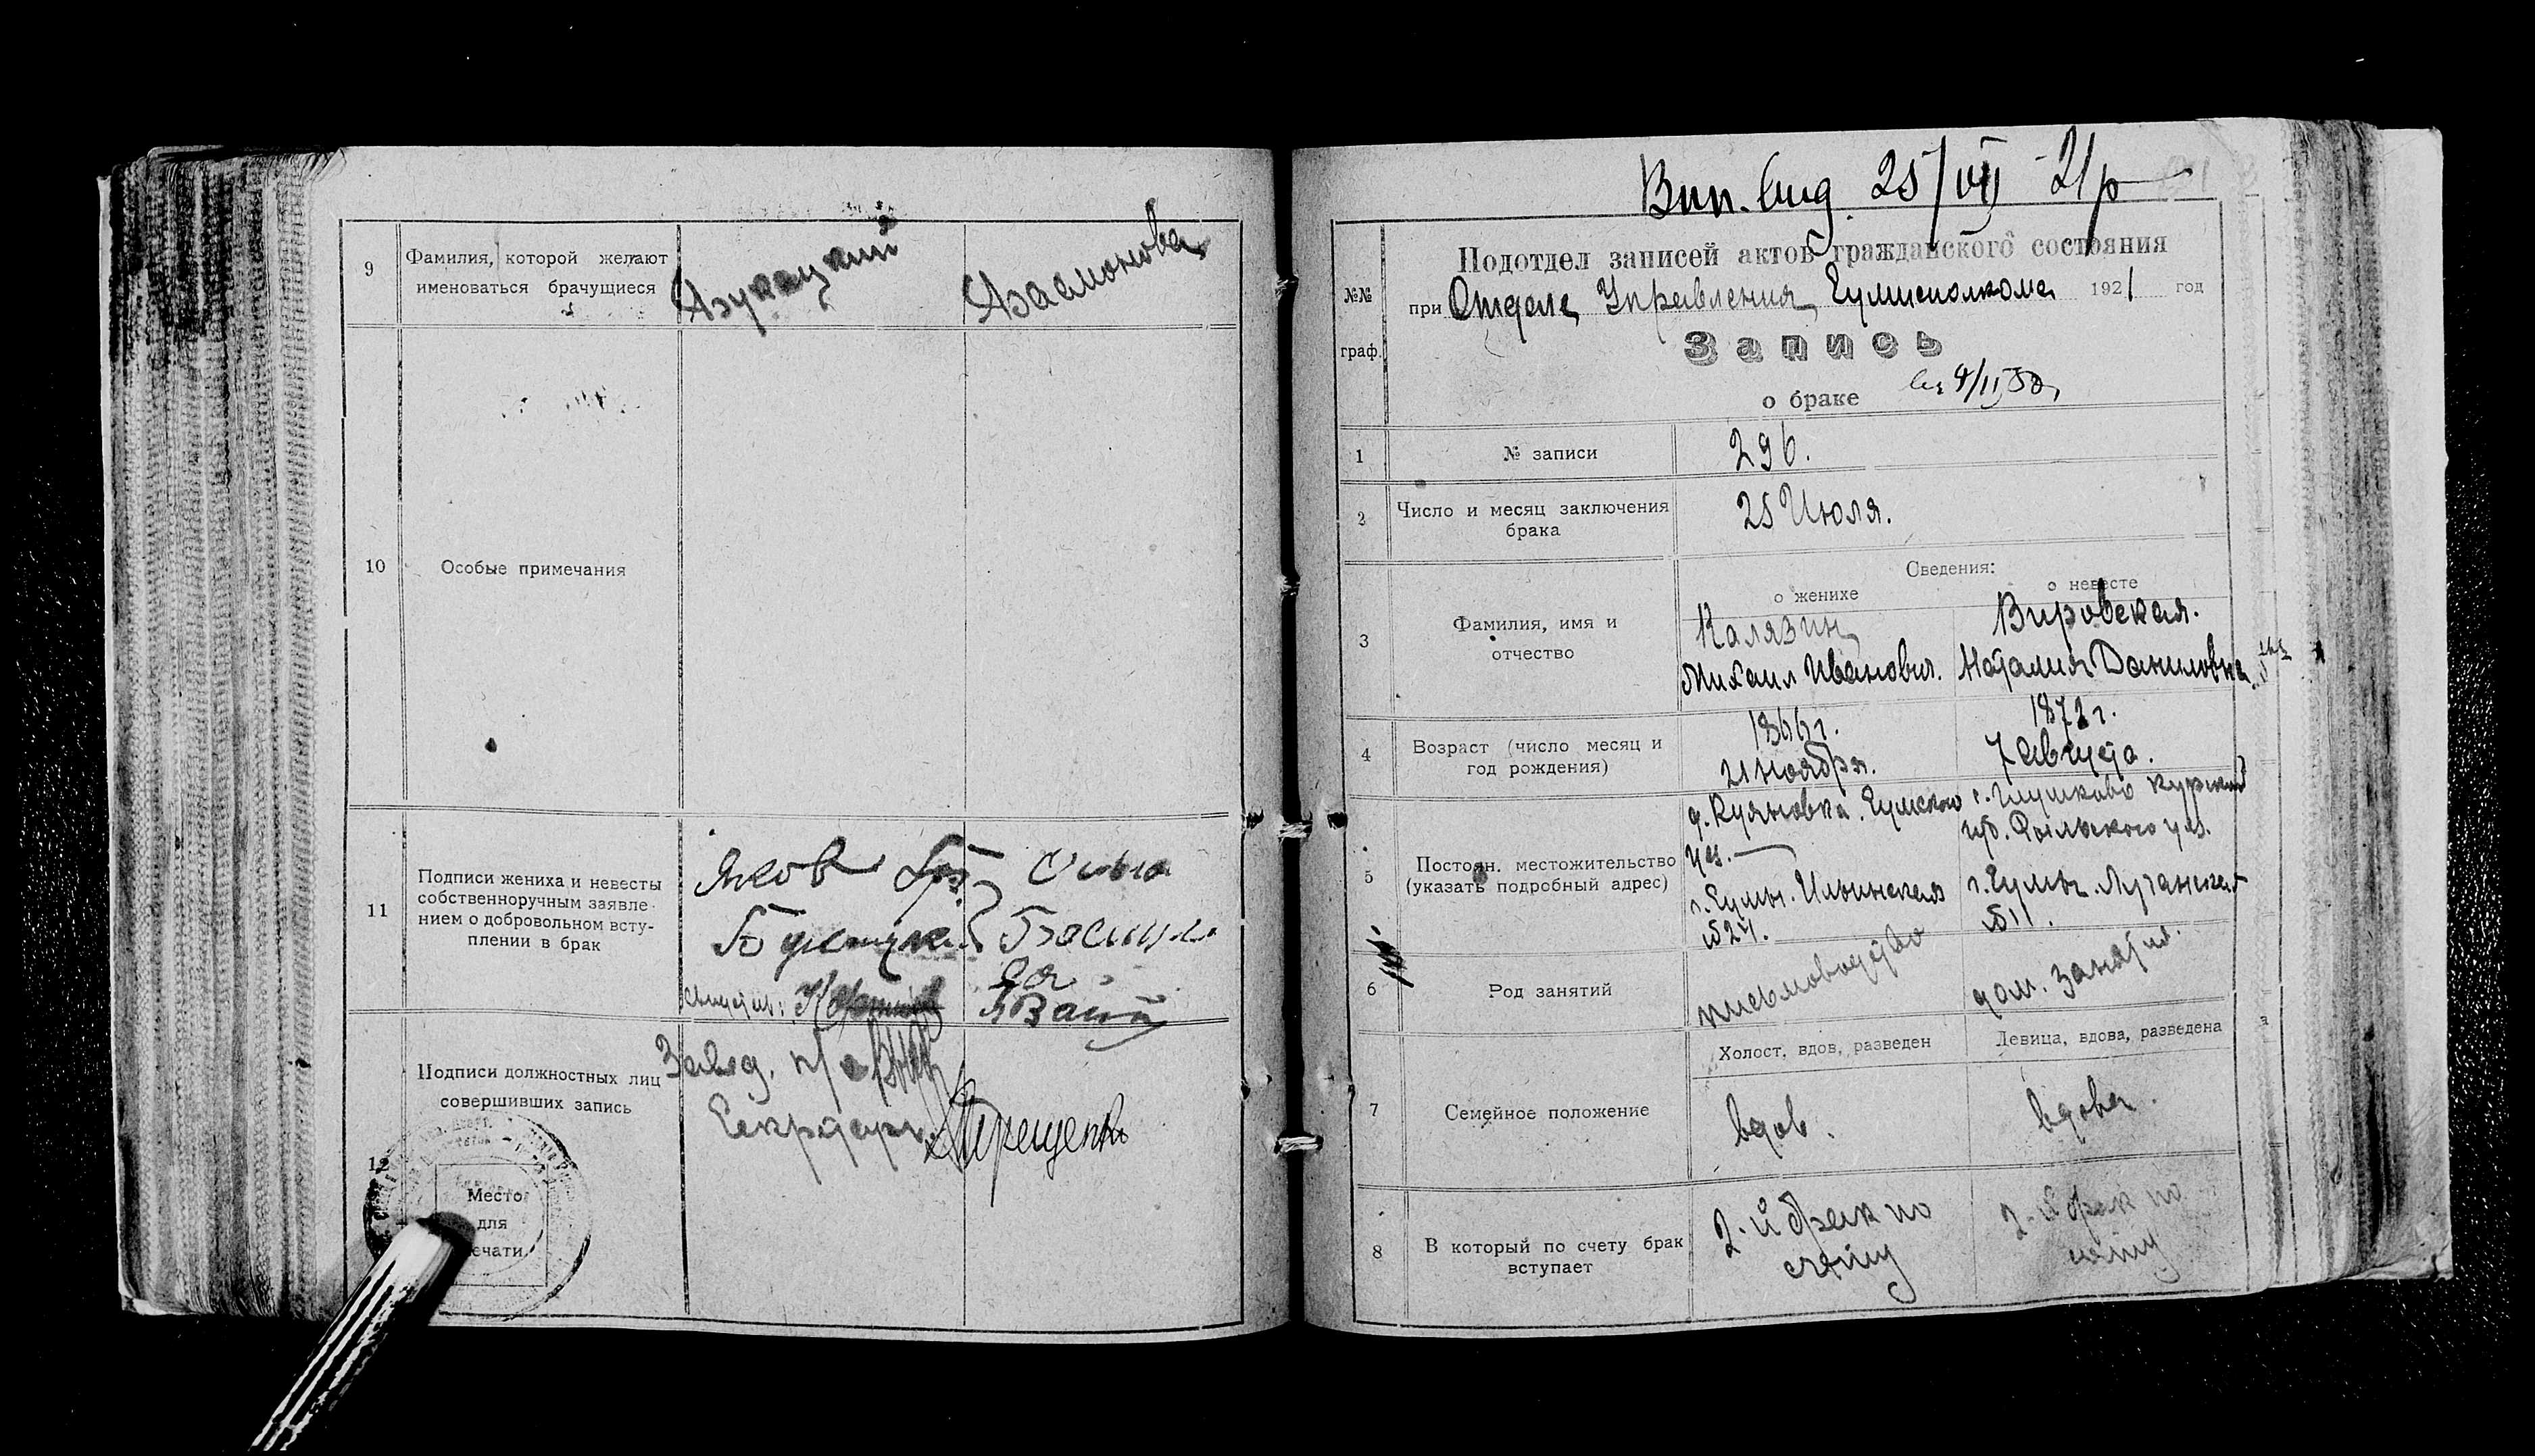 9
Фамилия, которой желают
именоваться брачущиеся
10
Особые примечания
11
Подписи жениха и невесты
собственноручным заявле-
нием о добровольном всту-
плении в брак
Яков
Подписи должностных лиц
совершивших запись
Завед. п/о
Секретарь Терещенко
12
Место
для
ечати
25/VII 21р
Подотдел записей актов гражданского состояния
№№
граф.
при Отделе Управления Сумисполкома 1921 год
Запись
о браке
1
№ записи
296.
2
Число и месяц заключения
брака
25 Июля.
Сведения:
о женихе
о невесте
3
Фамилия, имя и
отчество
Калязин
Михаил Иванович.
Вировская.
Наталия Даниловна
4
Возраст (число месяц и
год рождения)
1866 г.
21 Ноября.
187 г.
7 Августа.
5
Постоян. местожительство
(указать подробный адрес)
д. Куяновка. Сумского
уез.
г. Сумы. Ильинская
№ 24.
с. Глушково Курской
губ. Рыльского уез.
г. Сумы. Луганская
№ 11.
6
Род занятий
письмоводство
дом. занятия.
7
Семейное положение
Холост, вдов, разведен
Девица, вдова, разведена
вдов.
вдова.
8
В который по счету брак
вступает
2-й брак по
счёту
2-й брак по
счёту